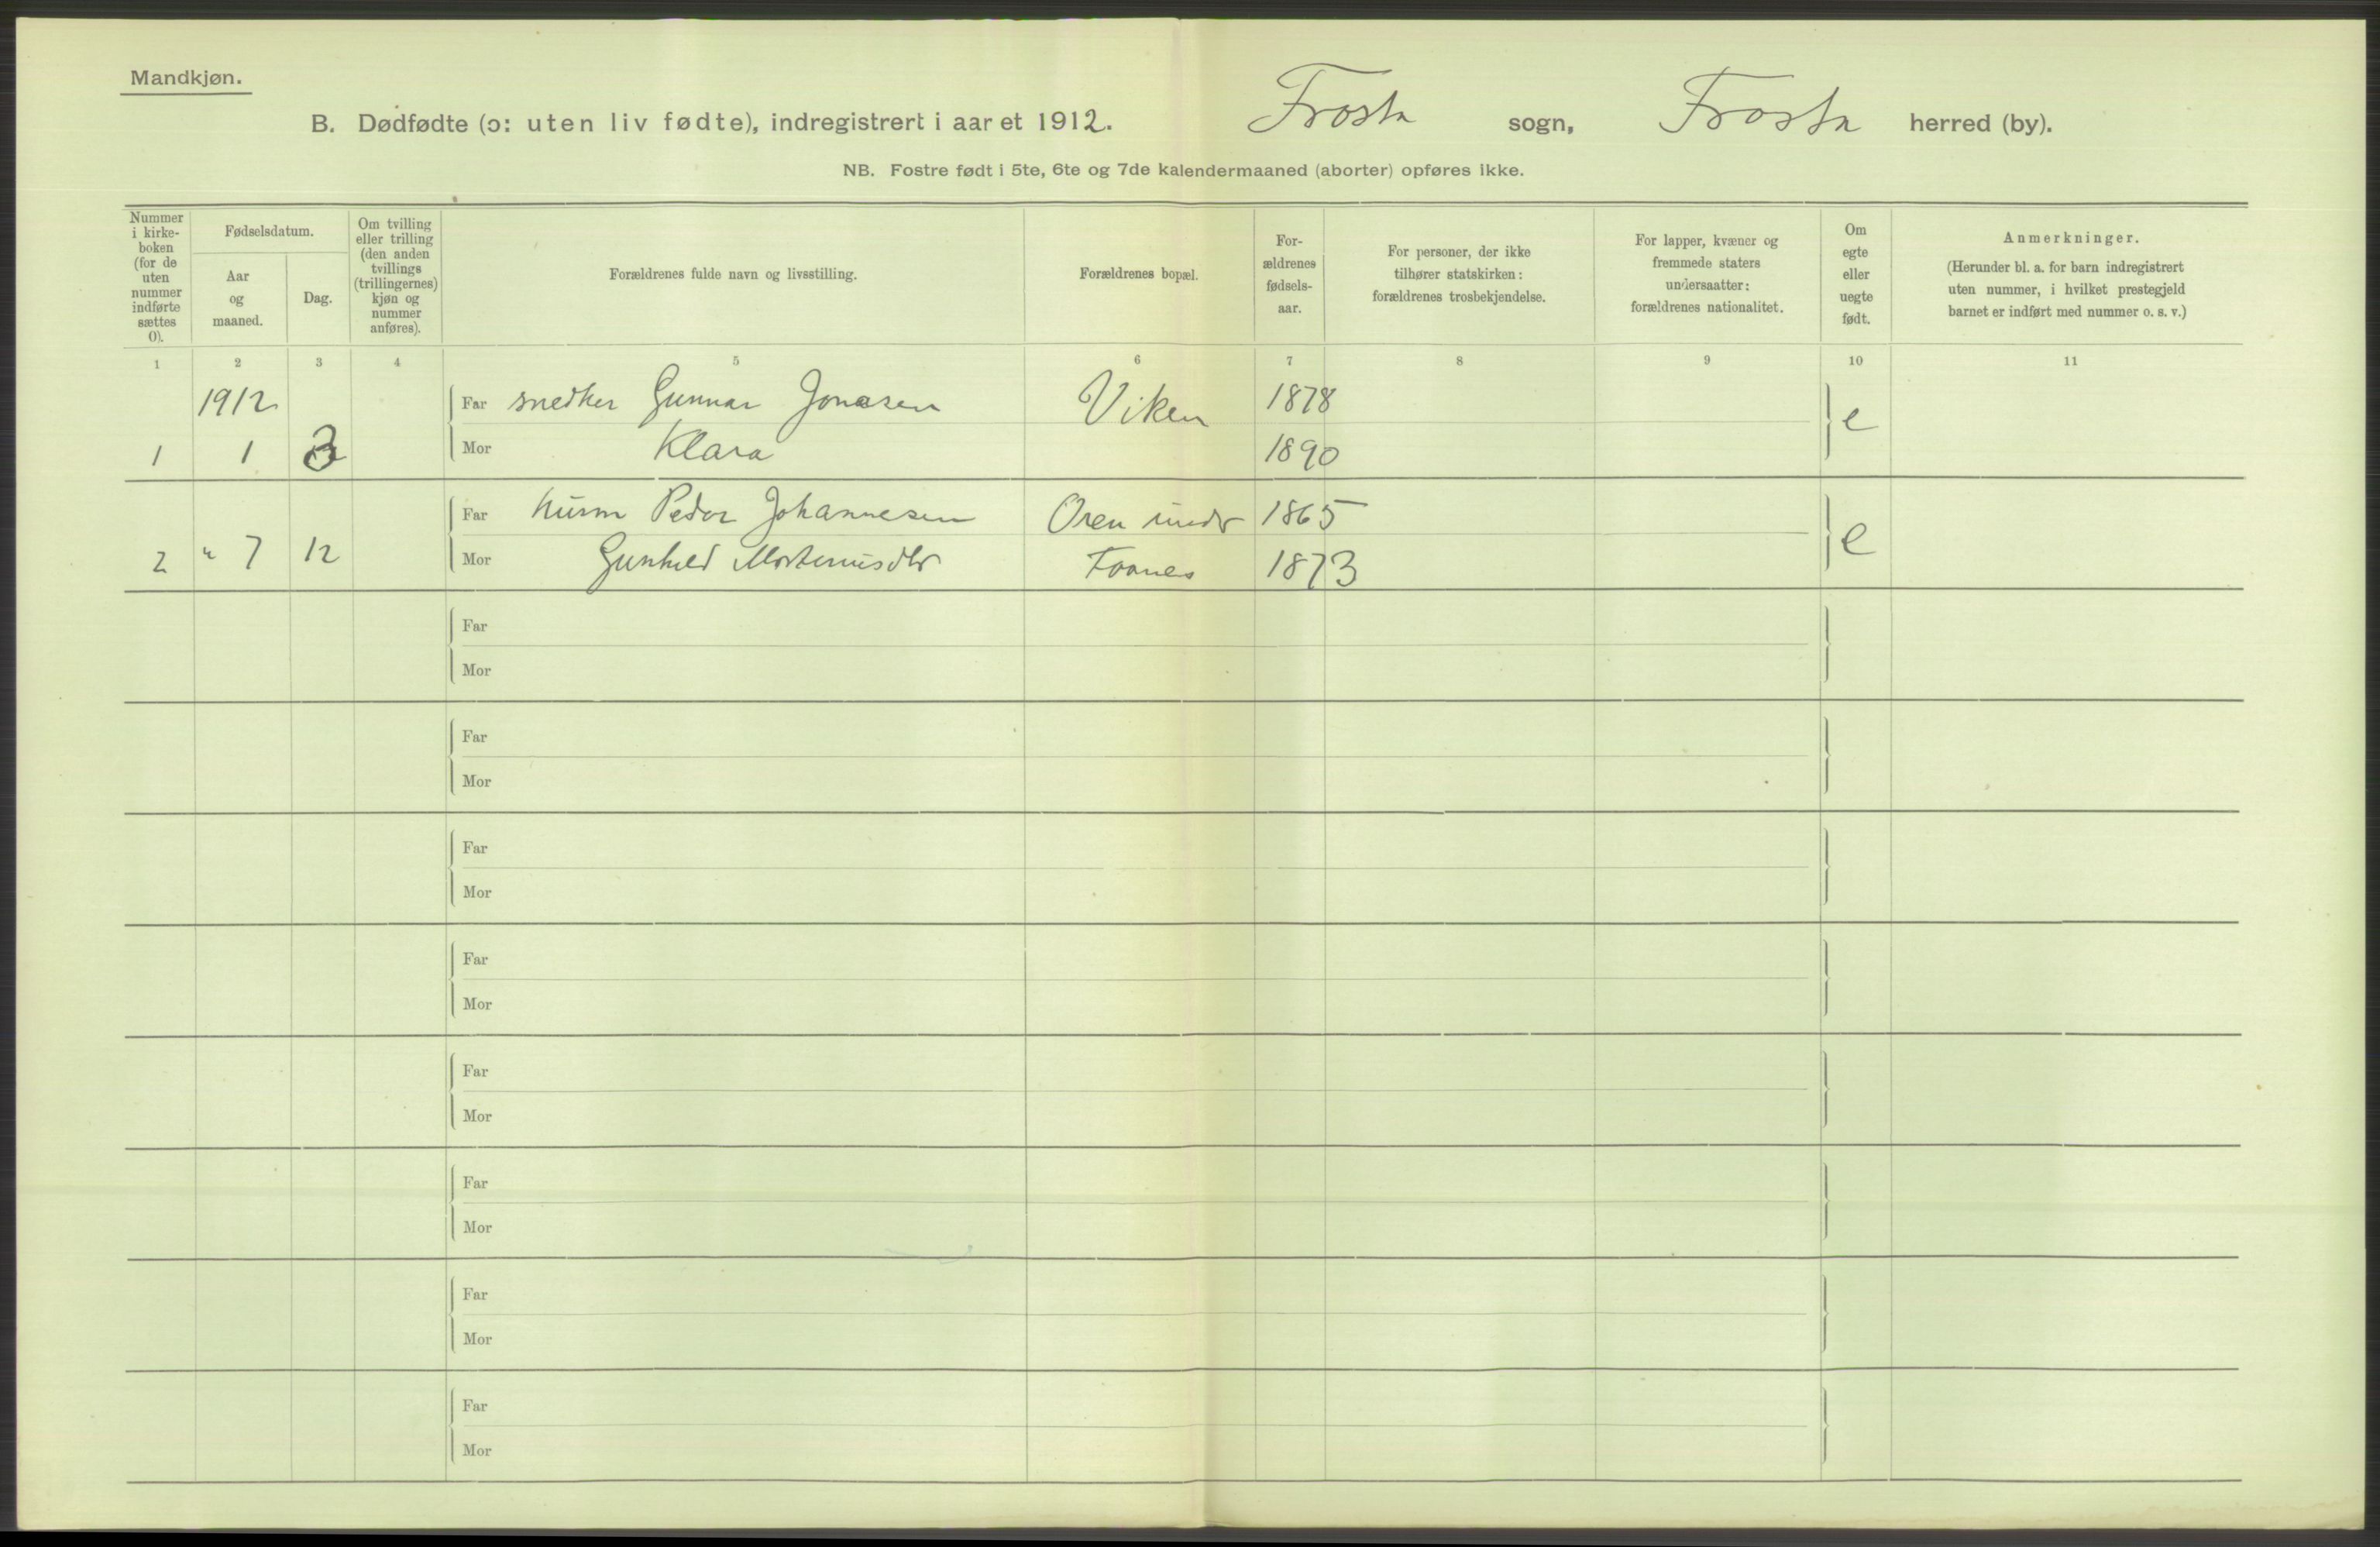 Mandkjøn.
B. Dødfødte (ɔ: uten liv fødte), indregistrert i aaret 1912. Frosta sogn, Frosta herred (by).
NB. Fostre født i 5te, 6te og 7de kalendermaaned (aborter) opføres ikke.
Nummer
i kirke-
boken
(for de
uten
nummer
indførte
sættes
0).
Fødselsdatum.
Aar
og
maaned.
Dag.
Om tvilling
eller trilling
(den anden
tvillings
(trillingernes)
kjøn og
nummer
anføres).
Forældrenes fulde navn og livsstilling.
Forældrenes bopæl.
For-
ældrenes
fødsels-
aar.
For personer, der ikke
tilhører statskirken:
forældrenes trosbekjendelse.
For lapper, kvæner og
fremmede staters
undersaatter:
forældrenes nationalitet.
Om
egte
eller
uegte
født.
Anmerkninger.
(Herunder bl. a. for barn indregistrert
uten nummer, i hvilket prestegjeld
barnet er indført med nummer o. s. v.)
1 2 3 4 5 6 7 8 9 10 11
1912 Far snedker Gunnar Jonasen Viken 1878 e
1 1 3 Mor Klara 1890
Far husm Peder Johannesen Oren under 1865 e
2 " 7 12 Mor Gunhild Mortinusdtr Faanes 1873
Far
Mor
Far
Mor
Far
Mor
Far
Mor
Far
Mor
Far
Mor
Far
Mor
Far
Mor